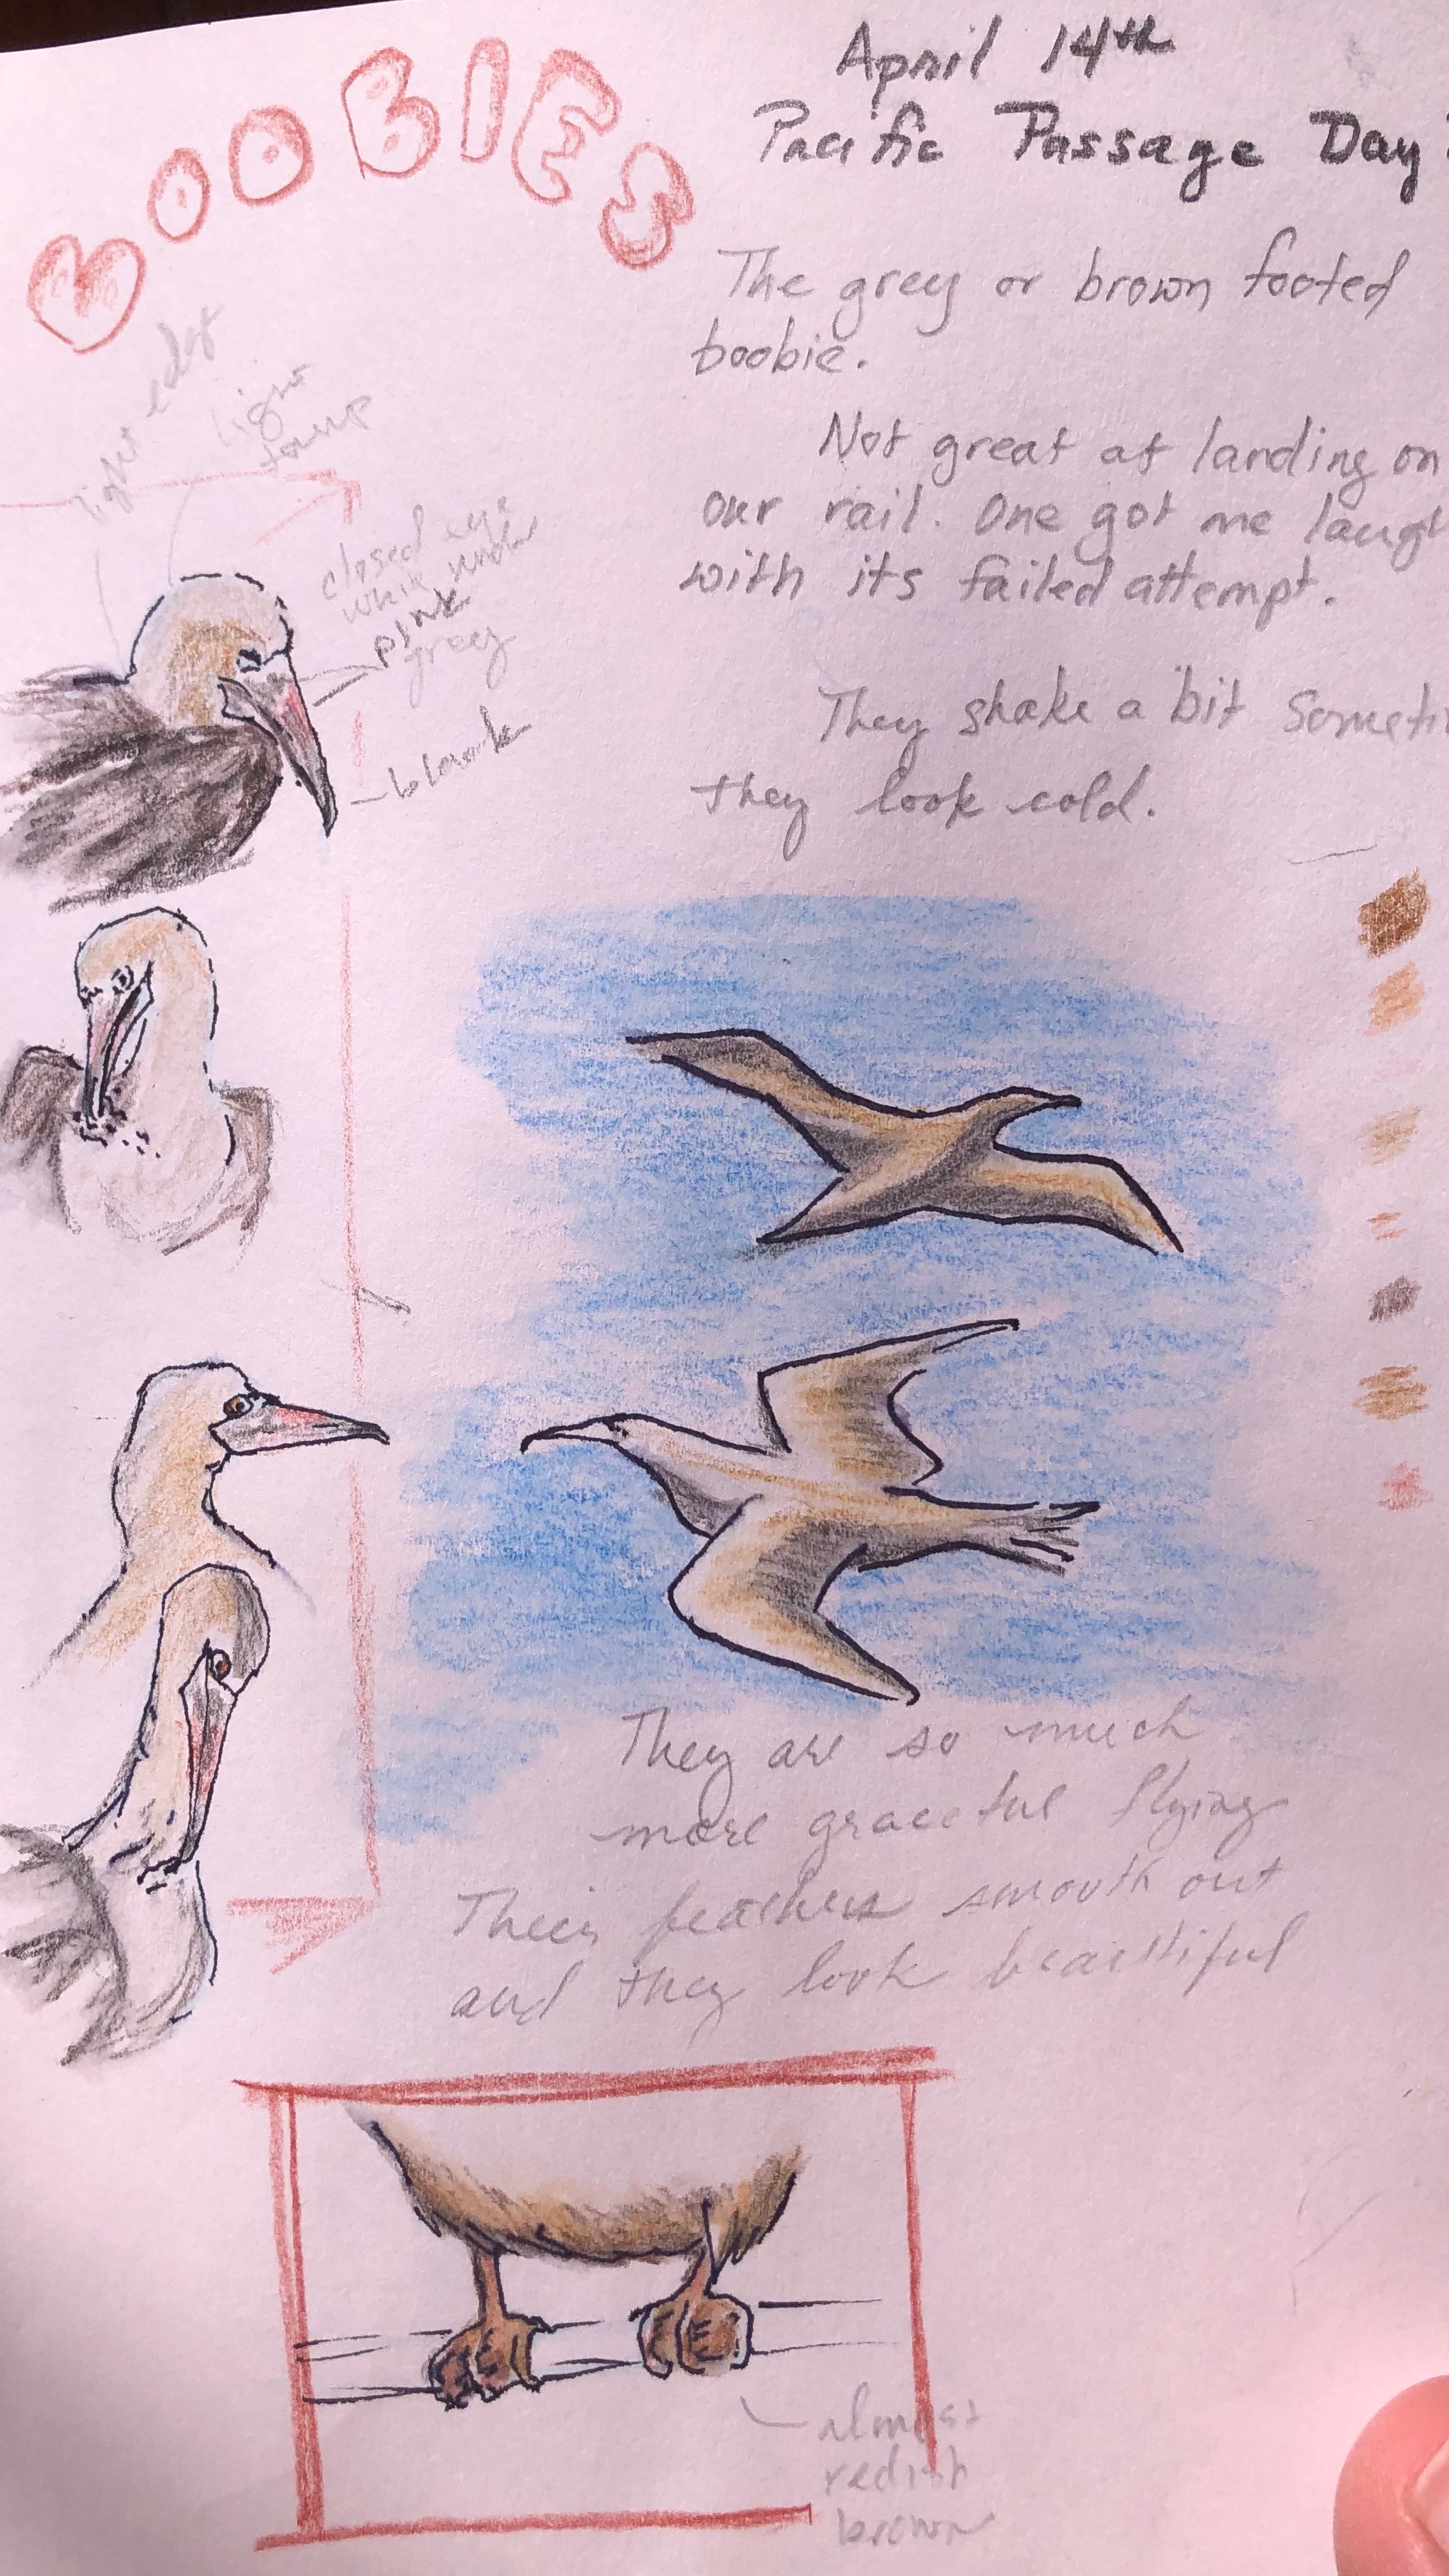 BOOBIES
April 14th
Pacific Passage Day
The grey or brown footed
boobie.
Not great at landing on
our rail. One got me laugh
with its failed attempt.
They shake a bit Someti
they look cold.
light edge
light
closed eye
white under
pink
grey
black
They are so much
more graceful flying
Their feathers smooth out
and they look beautiful
almost
redish
brown